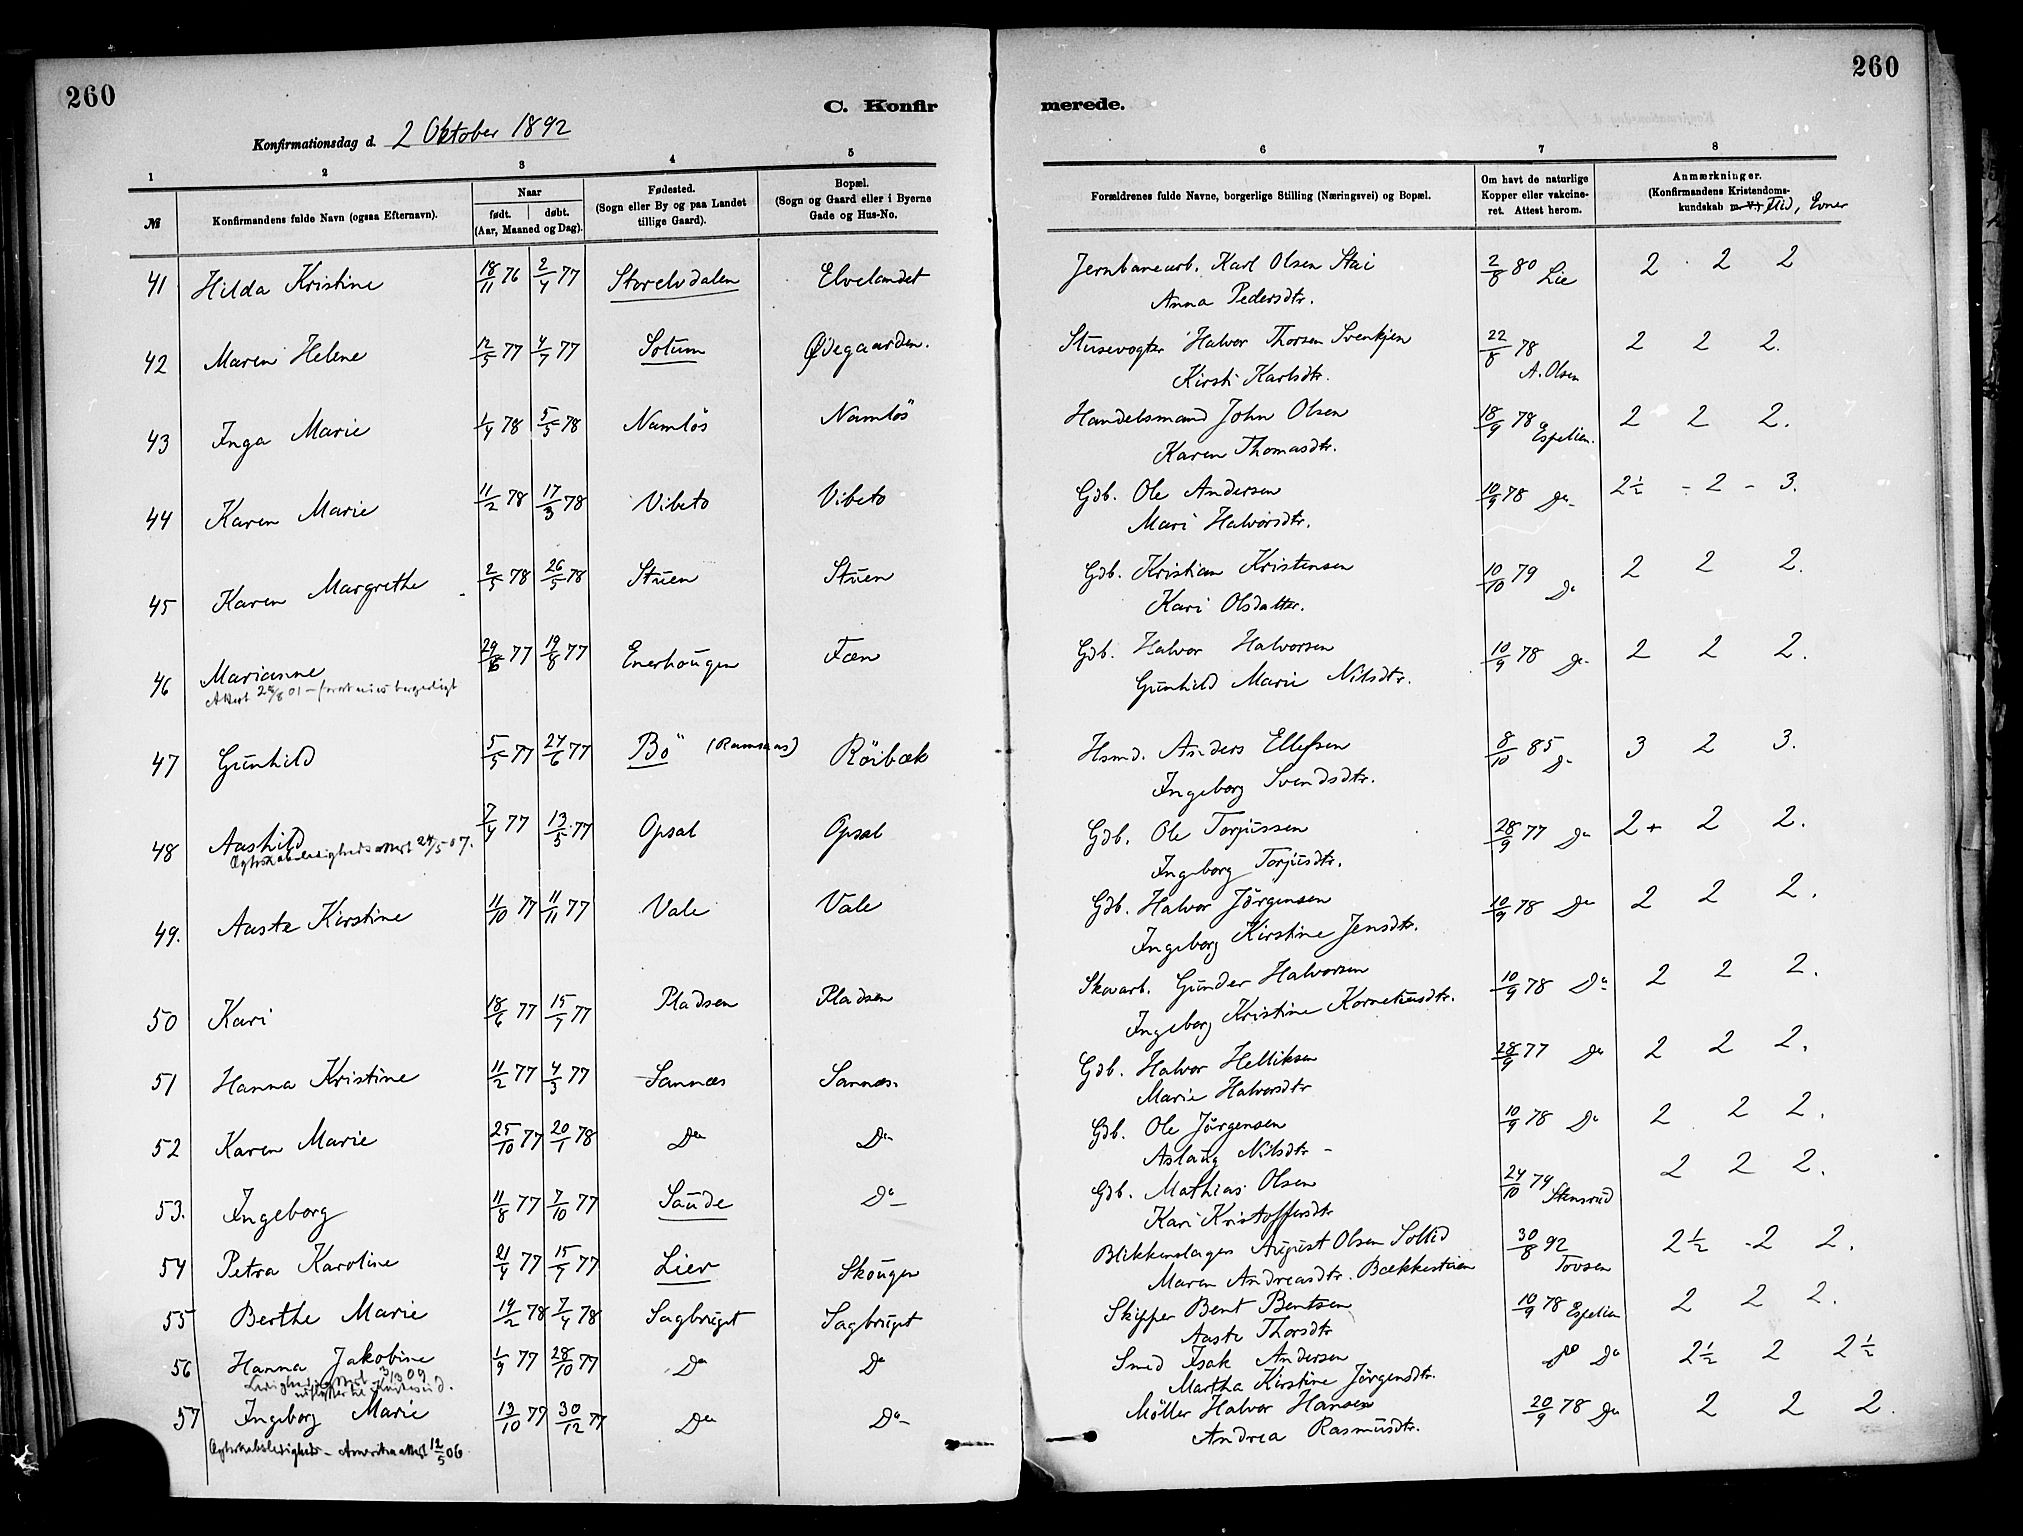 260
260
C. Konfirmerede.
Konfirmationsdag d. 2 Oktober 1892
1 2 3 4 5 6 7 8
№ Konfirmandens fulde Navn (ogsaa Efternavn). Naar født. døbt. (Aar, Maaned og Dag). Fødested. (Sogn eller By og paa Landet tillige Gaard). Bopæl. (Sogn og Gaard eller i Byerne Gade og Hus-No. Forældrenes fulde Navne, borgerlige Stilling (Næringsvei) og Bopæl. Om havt de naturlige Kopper eller vakcineret. Attest herom. Anmærkninger. (Konfirmandens Kristendomskundskab m. V.) Flid, Evner
41 Hilda Kristine 18/11 76 2/4 77 Storelvdalen Elvelandet Jernbanearb. Karl Olsen Stai 2/8 80 Lie 2 2 2
Anna Pedersdtr.
42 Maren Helene 12/5 77 4/7 77 Solum Ødegaarden. Slusevogter Halvor Thorsen Svenkjen 22/8 78 A. Olsen 2 2 2.
Kirsti Karlsdtr.
43 Inga Marie 1/4 78 5/5 78 Namløs Namløs Handelsmand John Olsen 18/9 78 Espelien. 2 2 2.
Karen Thomasdtr.
44 Karen Marie 11/2 78 17/3 78 Vibeto Vibeto Gdb. Ole Andersen 10/9 78 Do 2½ - 2 - 3.
Mari Halvorsdtr.
45 Karen Margrethe 2/5 78 26/5 78 Stuen Stuen Gdb. Kristian Kristensen 10/10 79 Do 2 2 2.
Kari Olsdatter.
46 Marianne 29/6 77 19/8 77 Enerhougen Fæn Gdb. Halvor Halvorsen 10/9 78 Do 2 2 2.
Gunhild Marie Nilsdtr.
47 Gunhild 5/5 77 24/6 77 Bö (Ramsaas) Röibæk Hsmd. Anders Ellefsen 8/10 85 Do 3 2 3.
Ingeborg Svendsdtr.
48 Aashild 7/4 77 13/5 77 Opsal Opsal Gdb. Ole Torjussen 28/9 77 Do 2+ 2 2.
Ægteskabsledighedsattest 24/5 07. Ingeborg Torjusdtr.
49. Aaste Kirstine 11/10 77 11/11 77 Vale Vale Gdb. Halvor Jörgensen 10/9 78 Do 2 2 2.
Ingeborg Kirstine Jensdtr.
50 Kari 18/6 77 15/7 77 Pladsen Pladsen Skovarb. Gunder Halvorsen 10/9 78 Do 2 2 2.
Ingeborg Kristine Korneliusdtr.
51 Hanna Kristine 11/2 77 4/3 77 Sannæs Sannæs. Gdb. Halvor Helliksen 28/9 77 Do 2 2 2.
Marie Halvorsdtr
52 Karen Marie 25/10 77 20/1 78 Do Do Gdb. Ole Jörgensen 10/9 78 Do 2 2 2.
Aslaug Nilsdtr -
53. Ingeborg 11/8 77 7/10 77 Saude Do Gdb. Mathias Olsen 24/10 79 Stensrud 2 2 2.
Kari Kristoffersdtr
54 Petra Karoline 21/4 77 15/7 77 Lier Skougen Blikkenslager August Olsen Sollid 30/8 92 Tovsen 2½ - 2 2.
Maren Andreasdtr. Bækkestuen
55 Berthe Marie 19/2 78 7/4 78 Sagbruget Sagbruget Skipper Bent Bentsen 10/9 78 Espelien 2 2 2.
Aaste Thorsdtr
56 Hanna Jakobine 1/9 77 28/10 77 Do Do Smed Isak Andersen Do Do 2½ 2 2½
Martha Kirstine Jörgensdtr.
57 Ingeborg Marie 13/10 77 30/12 77 Do Do Møller Halvor Hansen 20/9 78 Do 2 2 2.
Ægteskabsledigheds- Amerikaattest 12/5 06 Andrea Rasmusdtr.